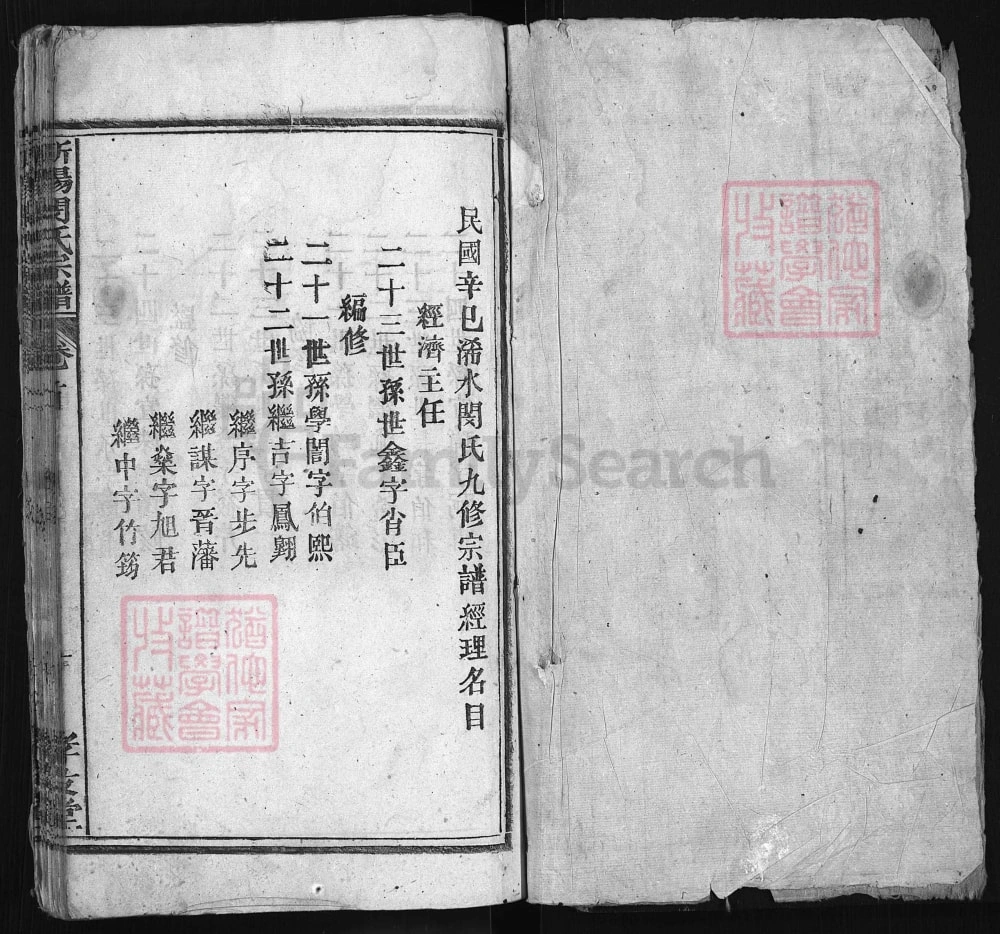 民國辛巳浠水閔氏九修宗譜經理名目
經濟主任
二十三世孫世鑫字肖臣
編修
二十一世孫學誾字伯熙
二十二世孫繼吉字鳳翔
繼序字步先
繼謀字晉藩
繼燊字旭君
繼中字竹筠
閔氏宗譜
卷首
孝友堂
猶他家譜學會收藏
猶他家譜學會收藏
FamilySearch